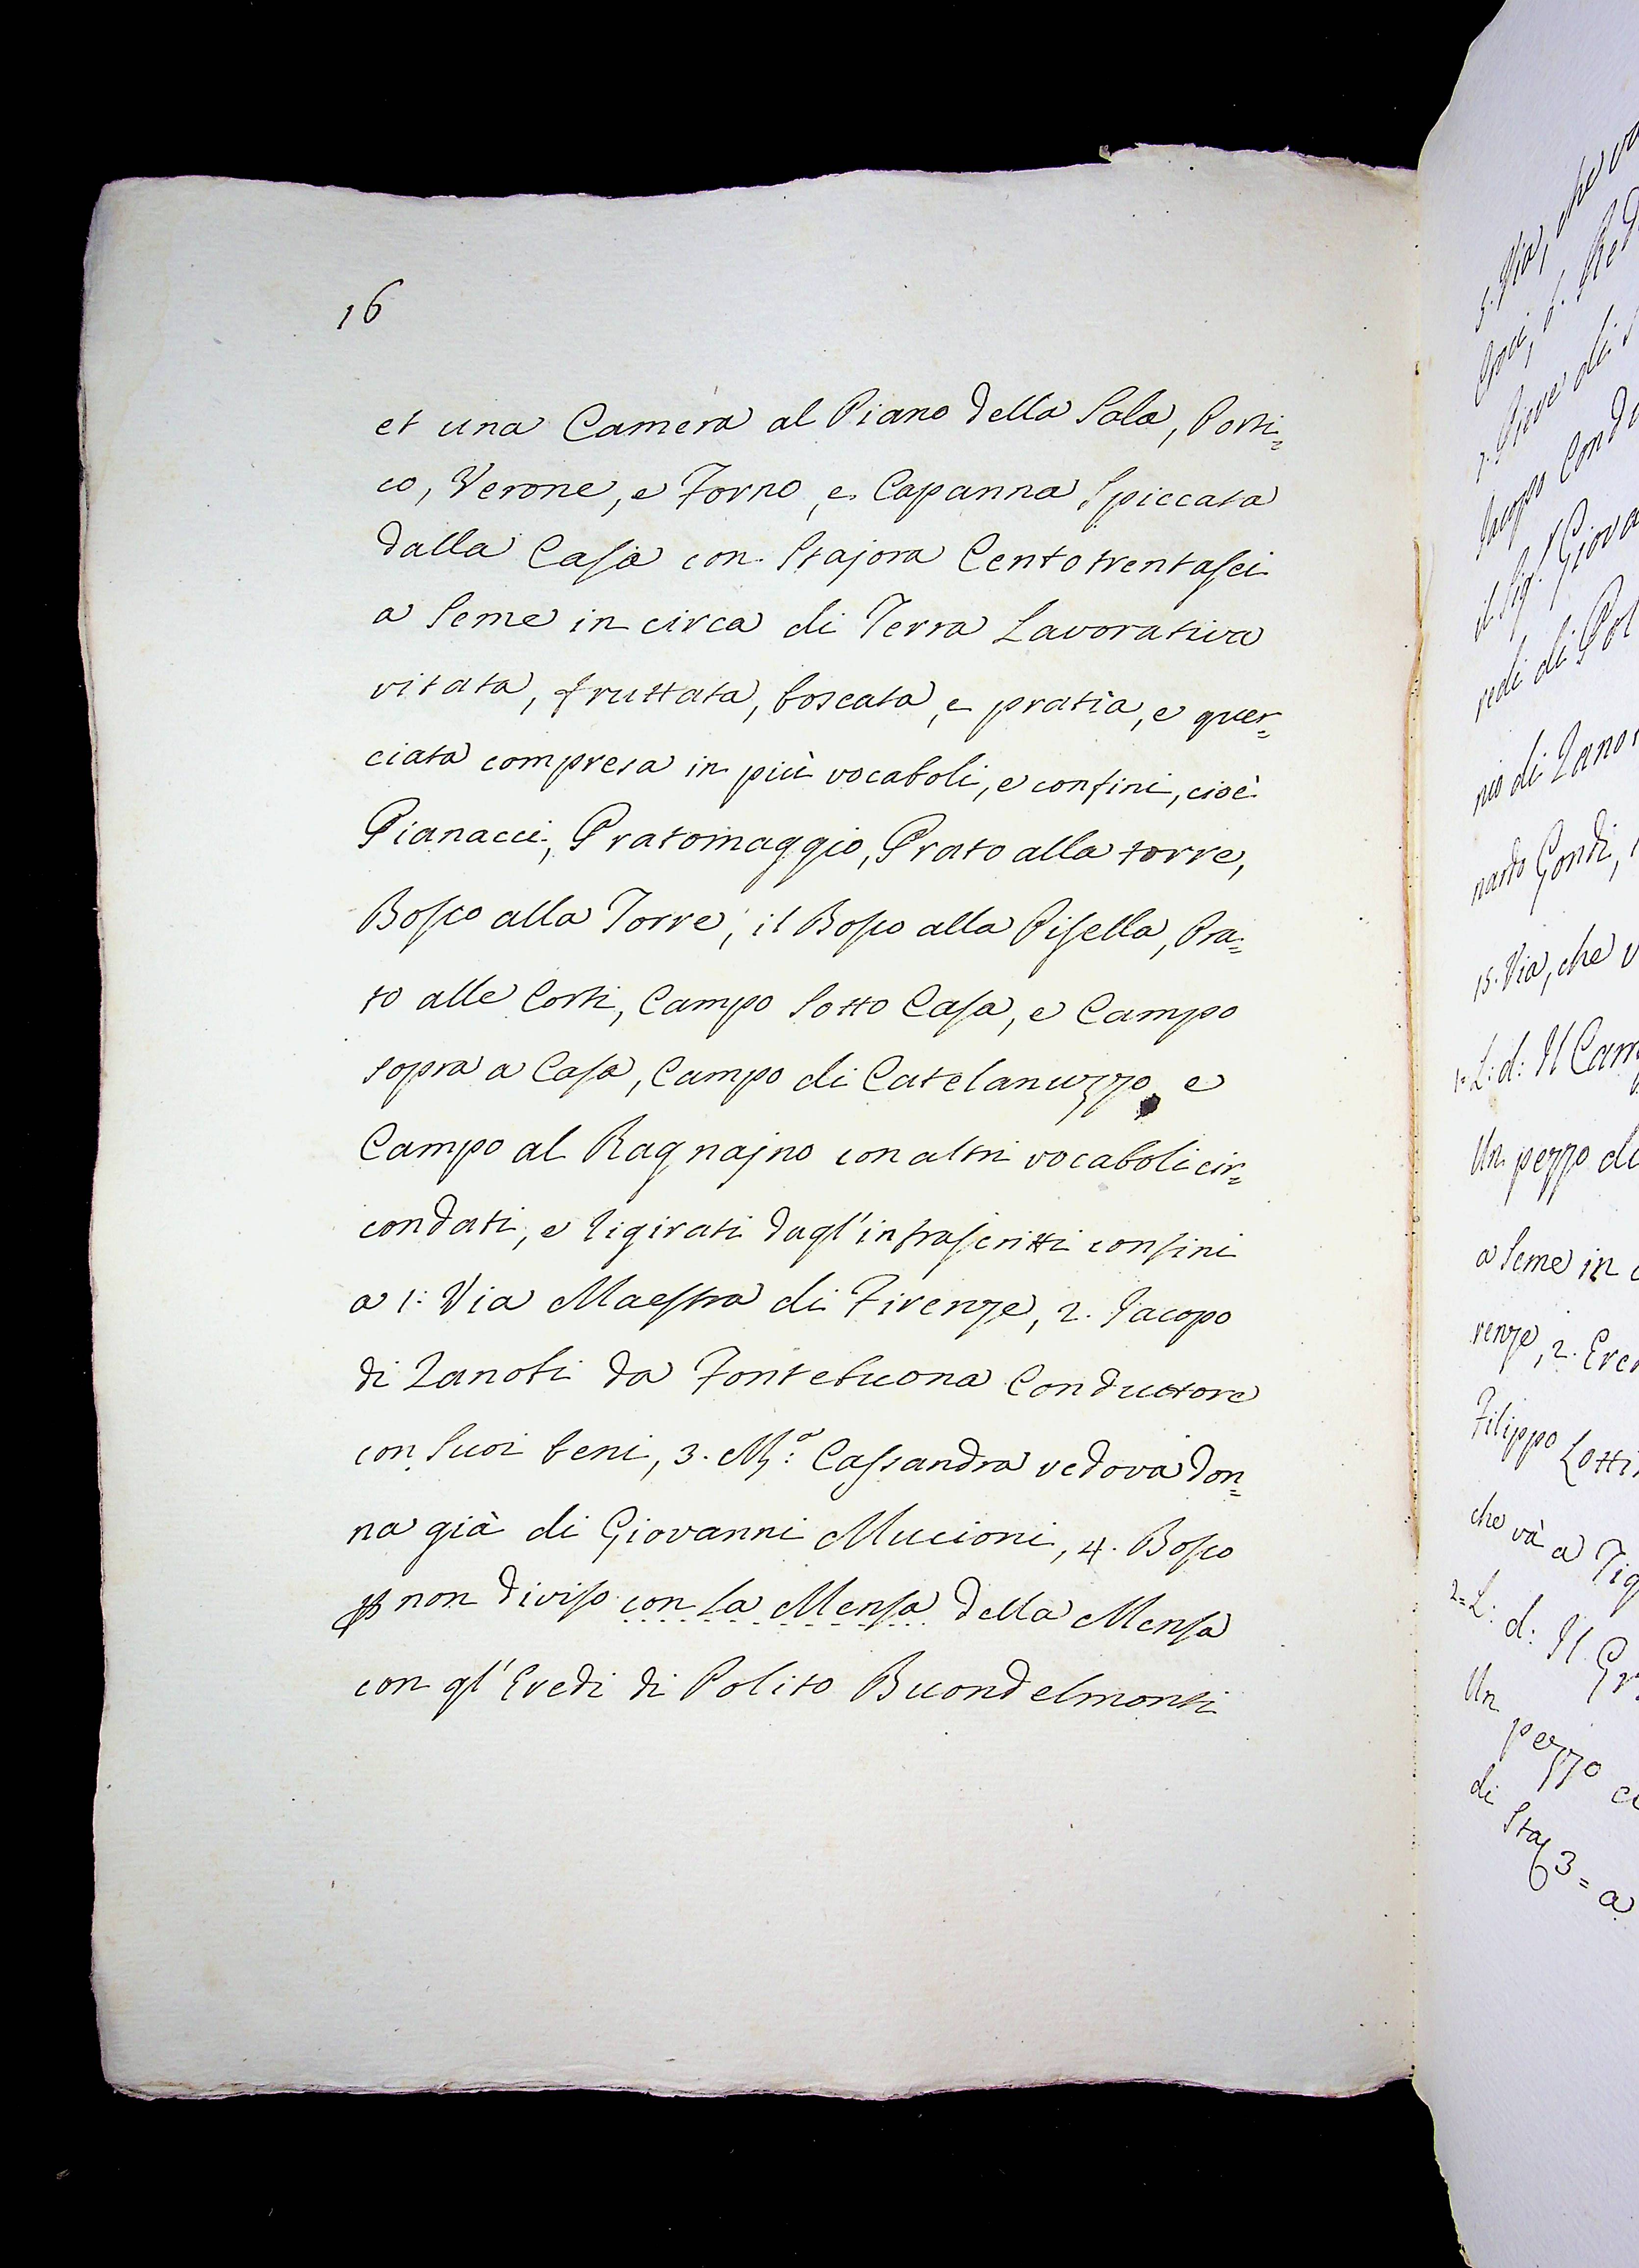 16
et una Camera al Piano della Sala, Porti=
co, Verone, e Forno, e Capanna Spiccata
dalla Casa con Stajora Centotrentasei
a Seme in circa di Terra Lavorativa
vitata, fruttata, boscata, e pratìa, e quer=
ciata compresa in più vocaboli, e confini, cioè
Pianacci, Pratomaggio, Prato alla torre,
Bosco alla Torre, il Bosco alla Pisella, Pra=
to alle Corti, Campo Sotto Casa, e Campo
sopra a Casa, Campo di Catelanuzzo, e
Campo al Ragnajno con altri vocaboli cir=
condati, e ligirati dagl'infrascritti confini
a 1: Via Maestra di Firenze, 2. Jacopo
di Zanobi da Fontebuona Conduttore
con Suoi beni, 3. M.ª Cassandra vedova don=
na già di Giovanni Mucioni, 4. Bosco
non diviso con la Mensa della Mensa
con gl'Eredi di Polito Buondelmonti
5. Via, che va
6. Red
7. Pieve di
Jacopo Condu
il Sig.r Giova
redi di Pol
nio di Zano
nardo Gondi,
15. Via, che v
1= L: d: Il Cam
Un pezzo di
a Seme in c
renze, 2. Ere
Filippo Lotti
che và a
2= L: d: Il Gr
Un pezzo
di Staj 3= a